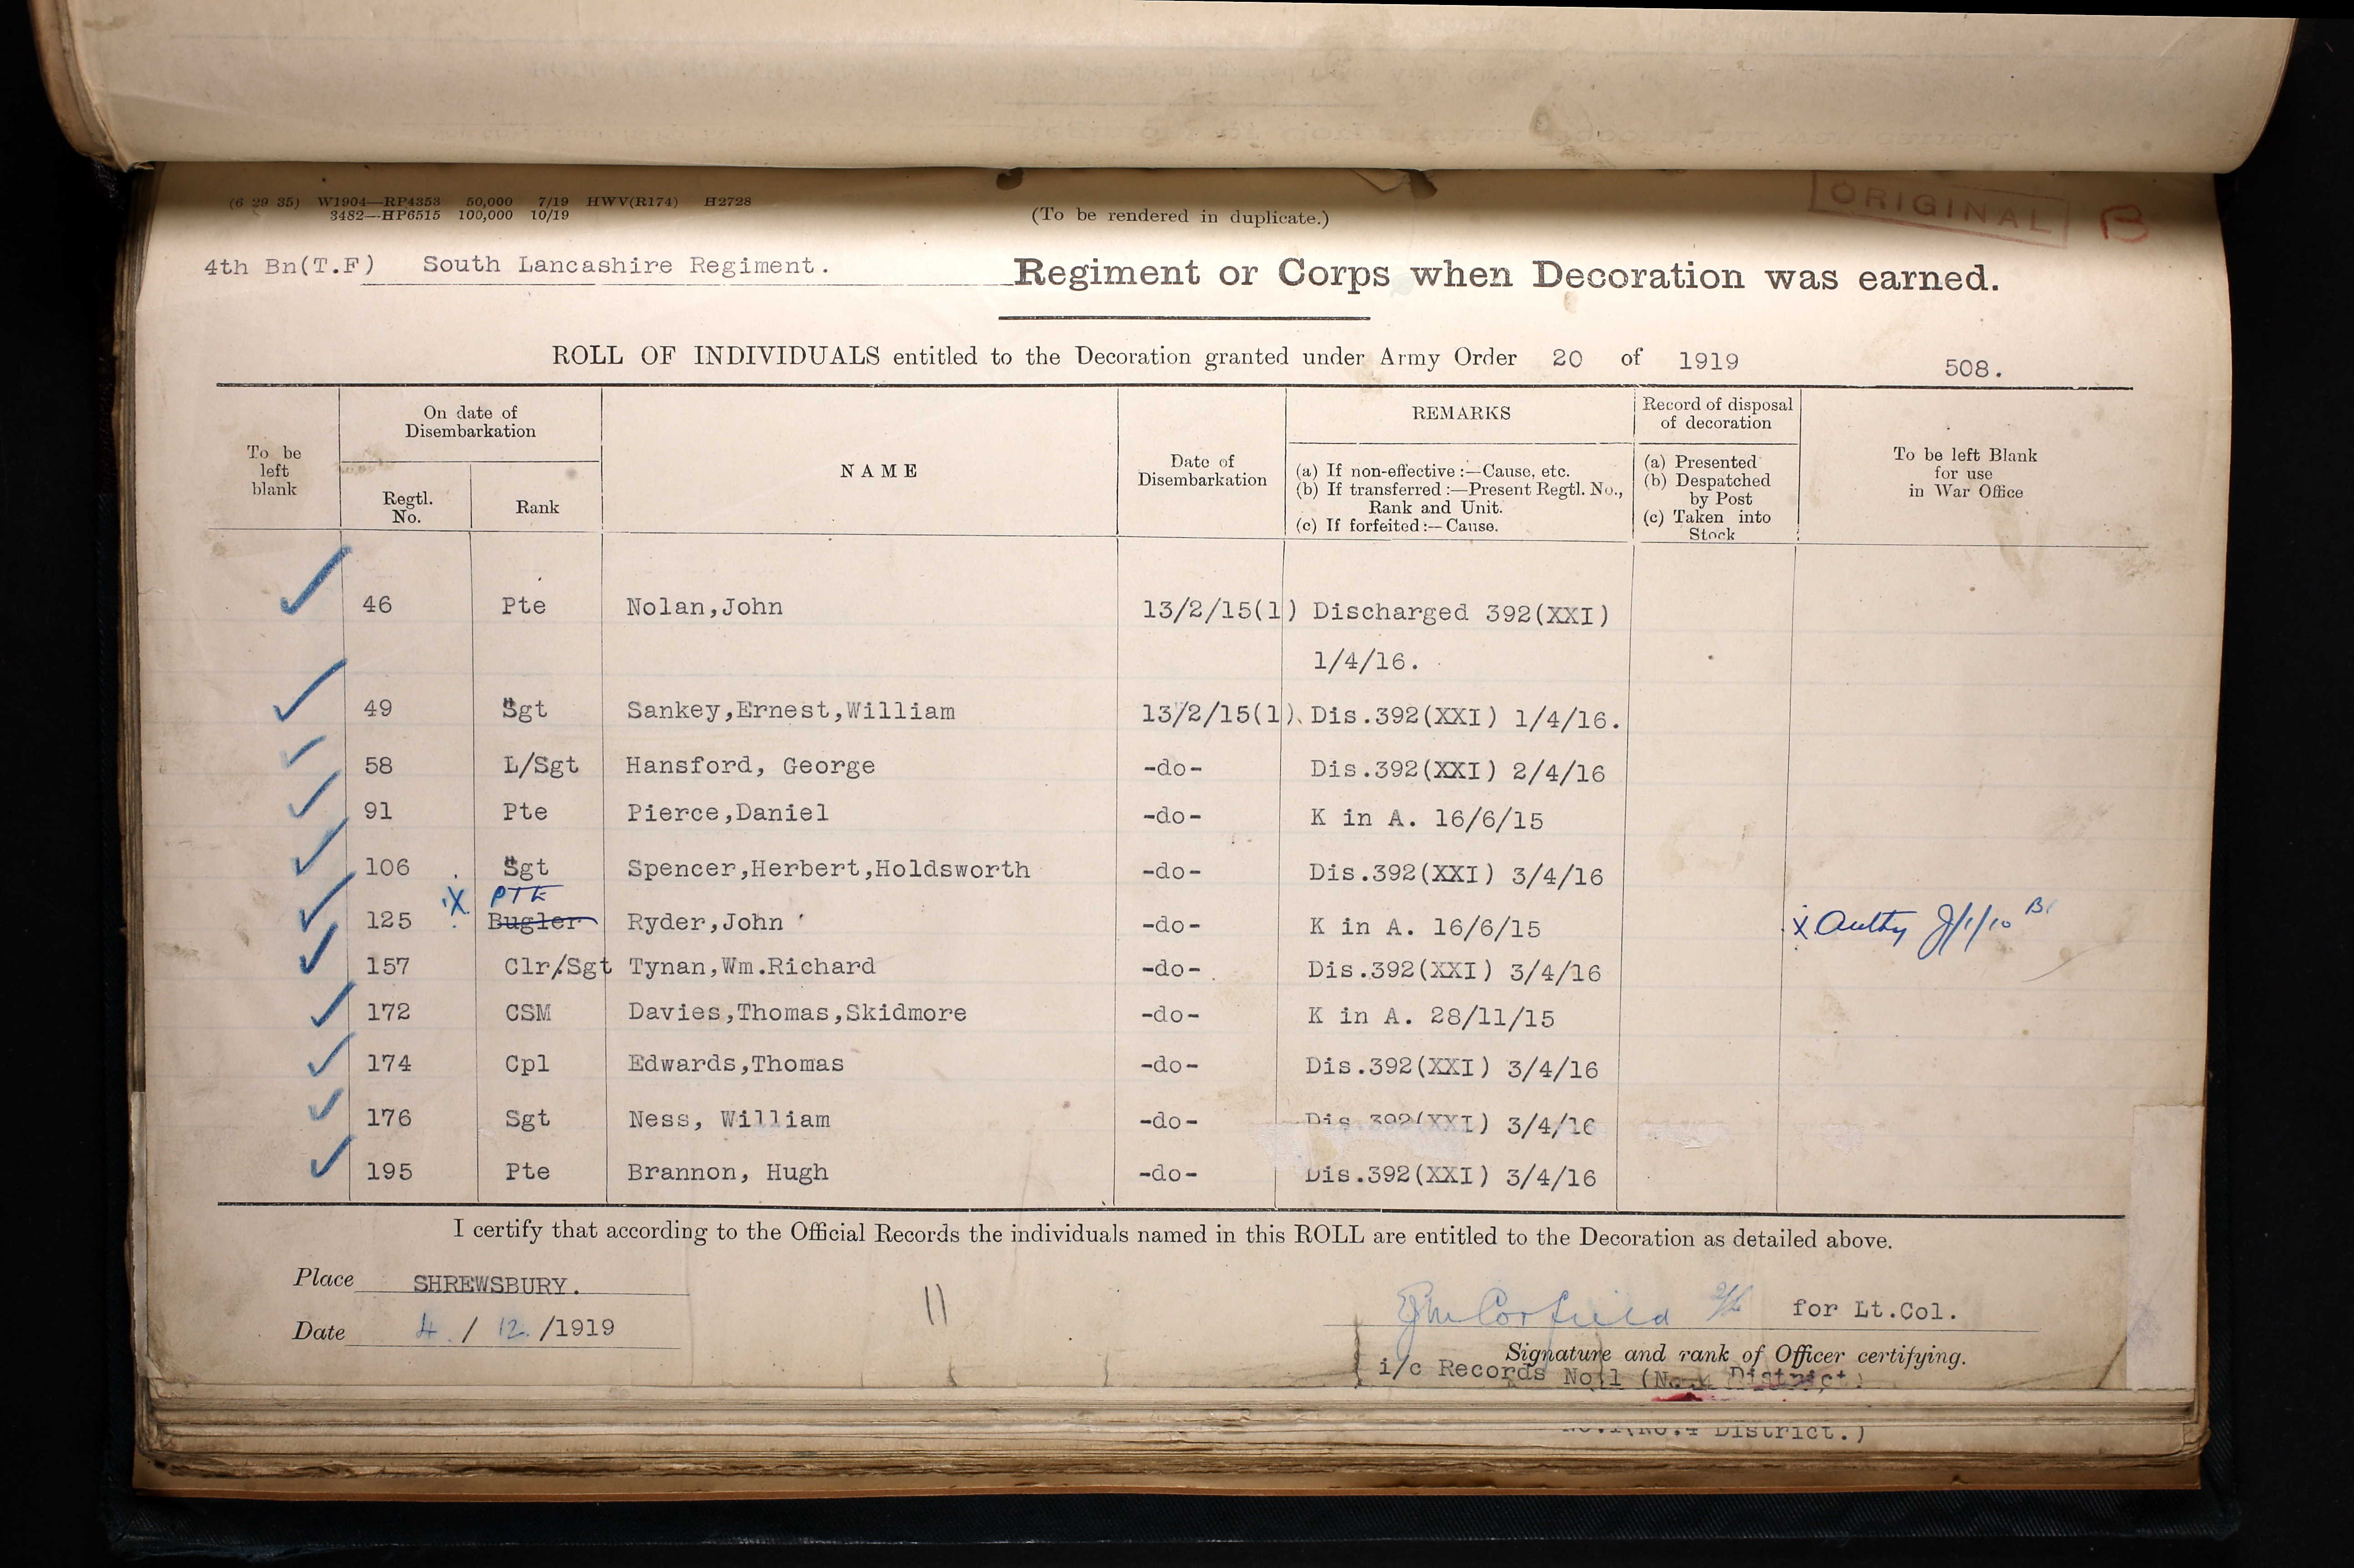 (6 29 35) W1904—RP4353 50,000 7/19 HWV(R174) H2728
3482—HP6515 100,000 10/19
(To be rendered in duplicate.)
ORIGINAL
B
4th Bn(T.F) South Lancashire Regiment. Regiment or Corps when Decoration was earned.
ROLL OF INDIVIDUALS entitled to the Decoration granted under Army Order 20 of 1919 508.
To be left blank
On date of Disembarkation
Regtl. No.
Rank
NAME
Date of Disembarkation
REMARKS
(a) If non-effective :—Cause, etc.
(b) If transferred :—Present Regtl. No., Rank and Unit.
(c) If forfeited :— Cause.
Record of disposal of decoration
(a) Presented
(b) Despatched by Post
(c) Taken into Stock
To be left Blank for use in War Office
46 Pte Nolan,John 13/2/15(1) Discharged 392(XXI)
1/4/16.
49 Sgt Sankey,Ernest,William 13/2/15(1). Dis.392(XXI) 1/4/16.
58 L/Sgt Hansford, George -do- Dis.392(XXI) 2/4/16
91 Pte Pierce,Daniel -do- K in A. 16/6/15
106 Sgt Spencer,Herbert,Holdsworth -do- Dis.392(XXI) 3/4/16
X PTE
125 Bugler Ryder,John -do- K in A. 16/6/15 X Authy J/1/10 Br
157 Clr/Sgt Tynan,Wm.Richard -do- Dis.392(XXI) 3/4/16
172 CSM Davies,Thomas,Skidmore -do- K in A. 28/11/15
174 Cpl Edwards,Thomas -do- Dis.392(XXI) 3/4/16
176 Sgt Ness, William -do- Dis.392(XXI) 3/4/16
195 Pte Brannon, Hugh -do- Dis.392(XXI) 3/4/16
I certify that according to the Official Records the individuals named in this ROLL are entitled to the Decoration as detailed above.
Place SHREWSBURY.
11
Corfield 2/Lt for Lt.Col.
Date 4. / 12. /1919
Signature and rank of Officer certifying.
i/c Records No.1 (No.4 District.)
No.1(No.4 District.)